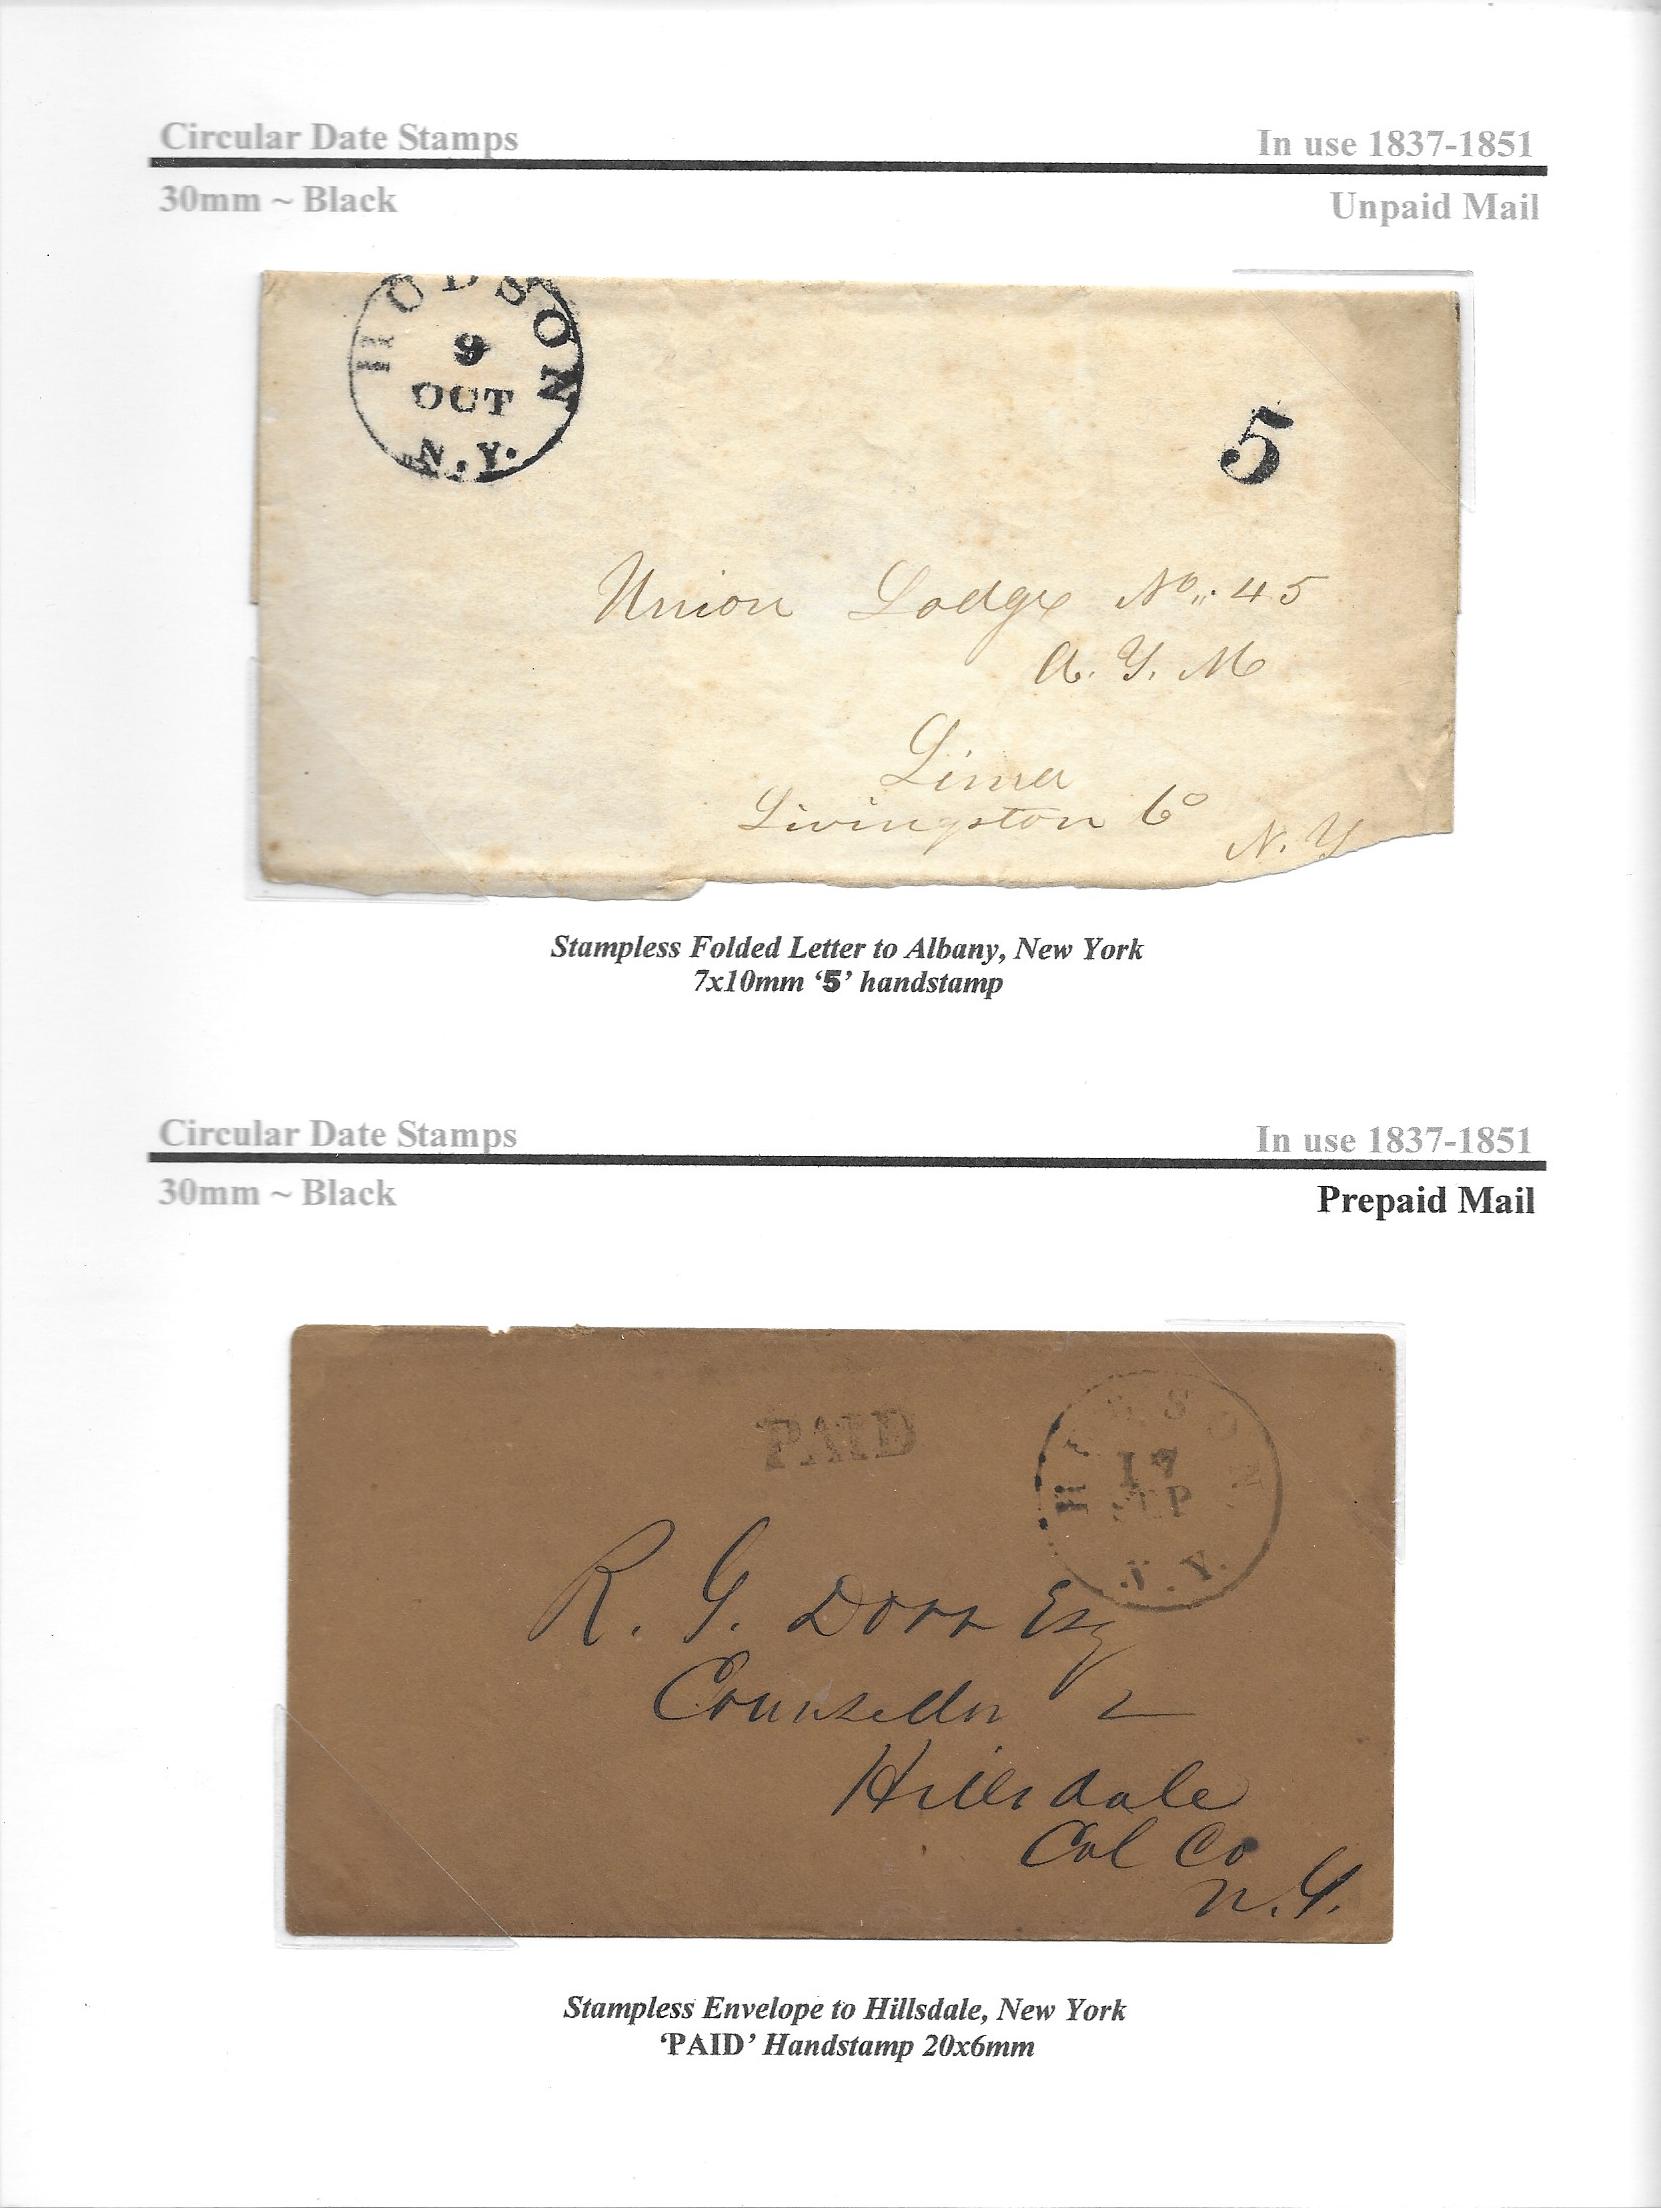 Circular Date Stamps In use 1837-1851
30mm ~ Black Unpaid Mail
HUDSON
9
OCT
N.Y.
5
Union Lodge No. 45
A. Y. M
Lima
Livingston Co
N. Y
Stampless Folded Letter to Albany, New York
7x10mm ‘5’ handstamp
Circular Date Stamps In use 1837-1851
30mm ~ Black Prepaid Mail
PAID
HUDSON
17
SEP
N.Y.
R. G. Dorr Esq
Counsellor
Hillsdale
Col Co
N.Y.
Stampless Envelope to Hillsdale, New York
‘PAID’ Handstamp 20x6mm